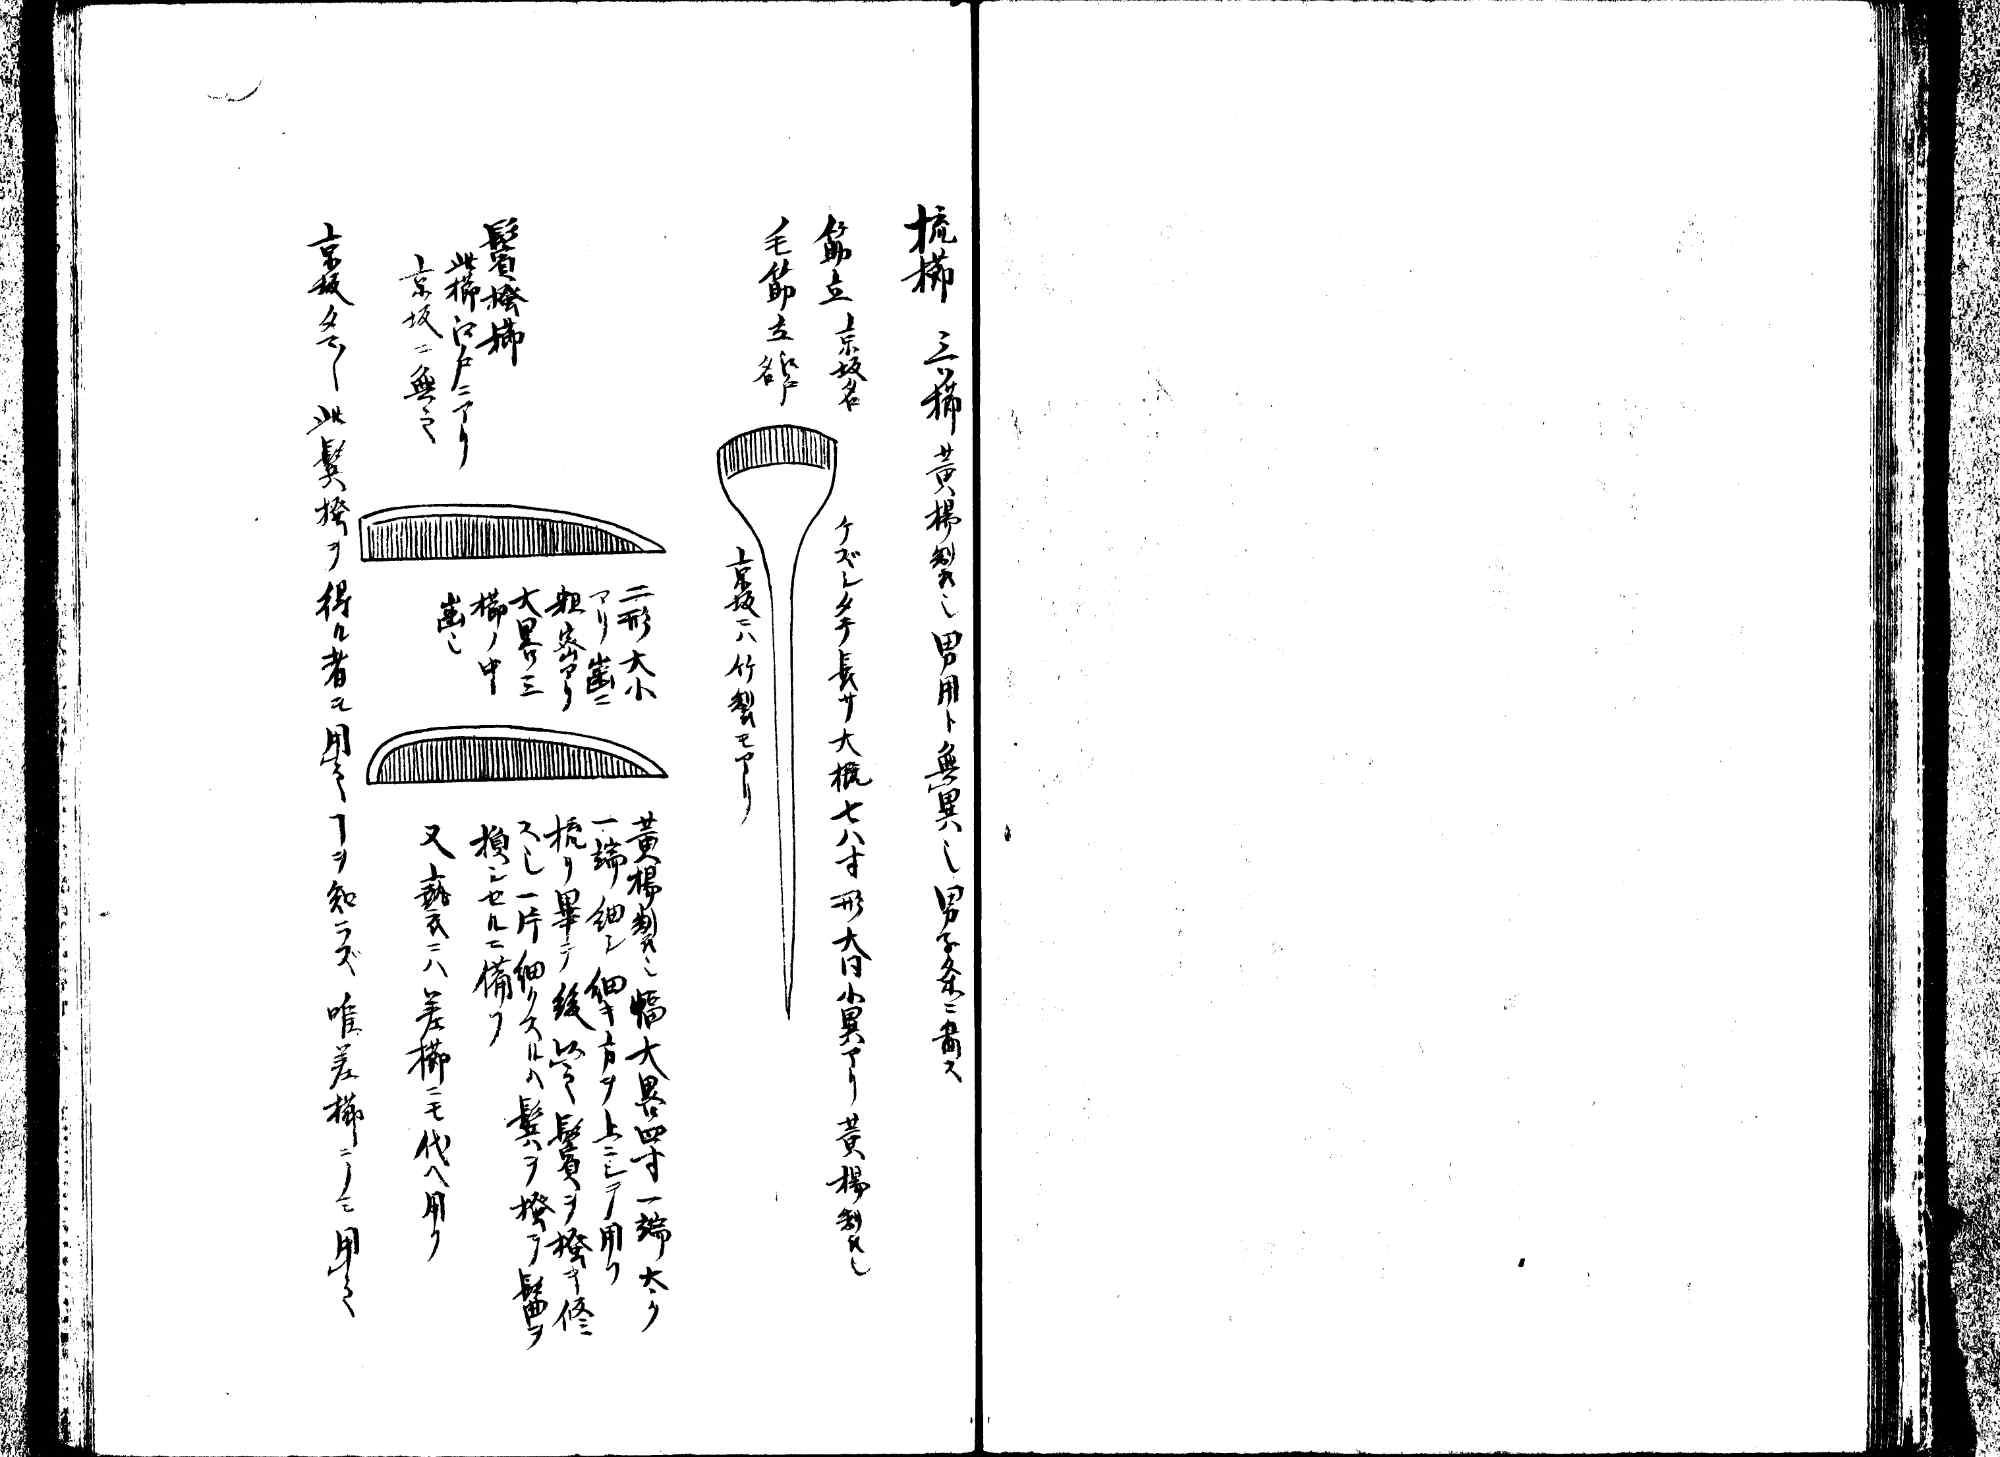 梳櫛 三ツ櫛 黄楊製也 男用ト無異也 男子条ニ畵ス
筋立 京坂名
毛筋立 江戸名
ケズレタチ長サ大概七八寸形大同小異アリ黄楊製也
京坂ニハ竹製モアリ
鬢掻櫛
此櫛江戸ニアリ
京坂ニ無之
二形大小
アリ歯ニ
粗密アリ
大畧三
櫛ノ中
歯也
黄楊製也幅大畧四寸一端太ク
一端細シ細キ方ヲ上ニシテ用フ
梳リ畢テ後以之鬢ヲ掻キ修ニ
ス也一片細クスルハ鬂ヲ掻テ髷ヲ
損ンセルニ備フ
又藝者ニハ差櫛ニモ代ヘ用フ
京坂タマ〳〵此鬂掻ヲ得ル者モ用之ヿヲ知ラズ唯差櫛ニノミ用之